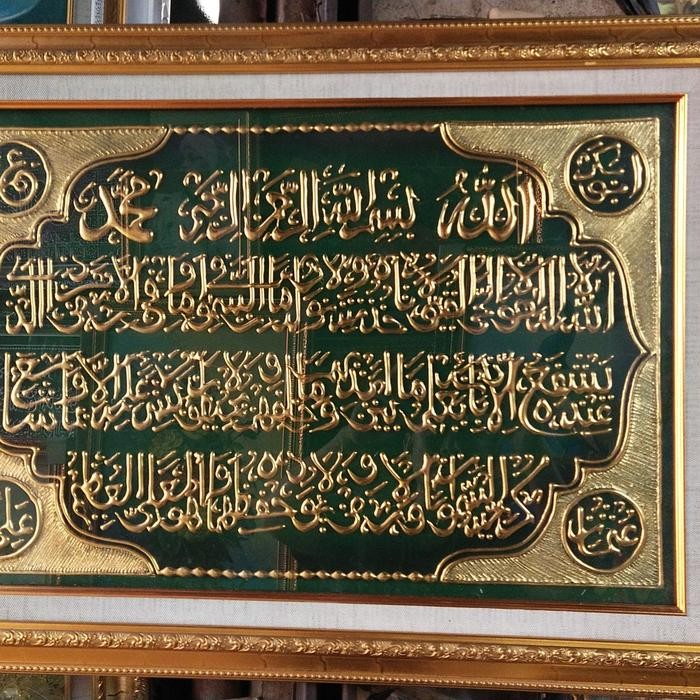 الله بسم الله الرحمن الرحيم محمد
الله لا اله الا هو الحي القيوم لا تأخذه سنة ولا نوم له ما في السموات وما في الارض من ذا الذي
يشفع عنده الا باذنه يعلم ما بين ايديهم وما خلفهم ولا يحيطون بشيء من علمه الا بما شاء وسع
كرسيه السموات والارض ولا يؤده حفظهما وهو العلي العظيم
ابو بكر
عمر
عثمان
علي